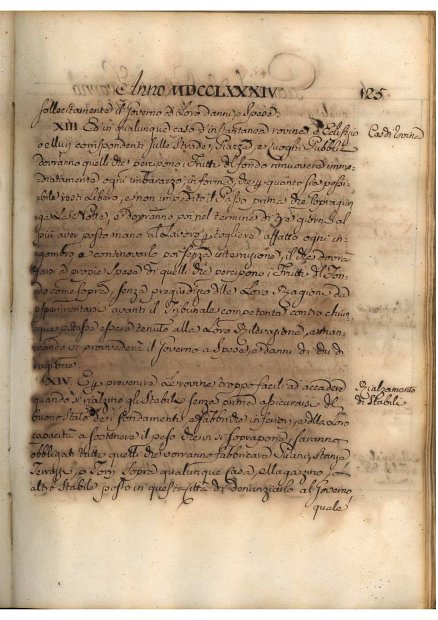 Anno MDCCLXXXIV 125
sollecitamente il Governo a Loro danni, e Spese.
XIII Ed in qualunque caso d'instantanea rovina d'Edifizio Casi di rovina
o Muri corrispondenti sulle Strade, Piazze, e Luoghi Pubblici
dovranno quelli che percipono i Frutti del fondo rimuovere imme-
diatamente ogni imbarazzo, in forma, che per quanto sia possi-
bile resti Libero, e non impedito il Passo prima che sopraqiun-
ga La Notte, e dovranno poi nel termine di tre giorni al
più aver posto mano al Lavoro per togliere affatto ogni in-
gombro e continovarlo poi senza interruzione, il che dovrà
farsi a proprie Spese di quelli che percipono i Frutti del Fon-
do come sopra, senza pregiudizio delle Loro Ragioni da
esperimentarsi avanti il Tribunale competente contro chiun-
que potesse essere tenuto alla Loro Rilevazione, e man-
cando vi provvederà il Governo a Spese, e danni di chi di
ragione.
XIV. E per prevenire Le rovine troppo facili ad accadere Rialzamento
quando si rialzino gli Stabili senza prima assicurarsi del di Stabili
buono stato dei fondamenti, e fabbriche inferiori, e della Loro
capacità a sostenere il peso che vi si soprapone, saranno
obbligati tutti quelli che vorranno fabbricare Piani, Stanze
Terrazze, o Torri sopra qualunque Casa, Magazzino, od
altro Stabile posto in questa Città di denunziarlo al Governo,
quale